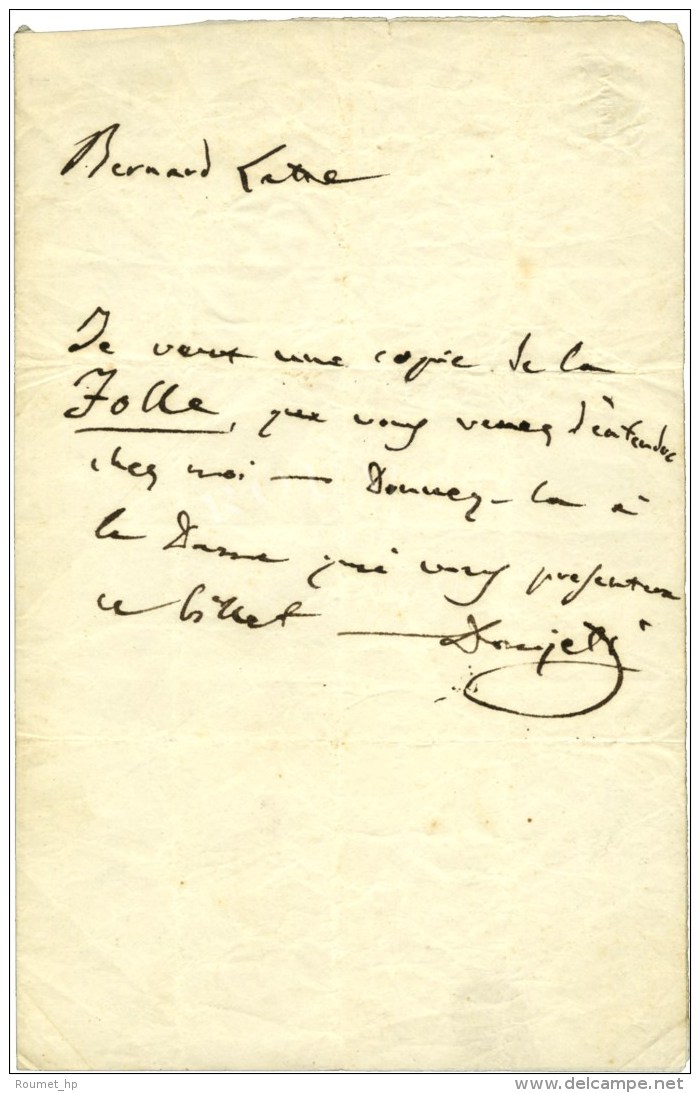 Bernard Latte
Je veux une copie de la
Folle, que vous venez d'entendre
chez moi — Donnez-la à
la Dame qui vous presentera
ce billet — Donizetti
Roumet_hp
delcampe.net